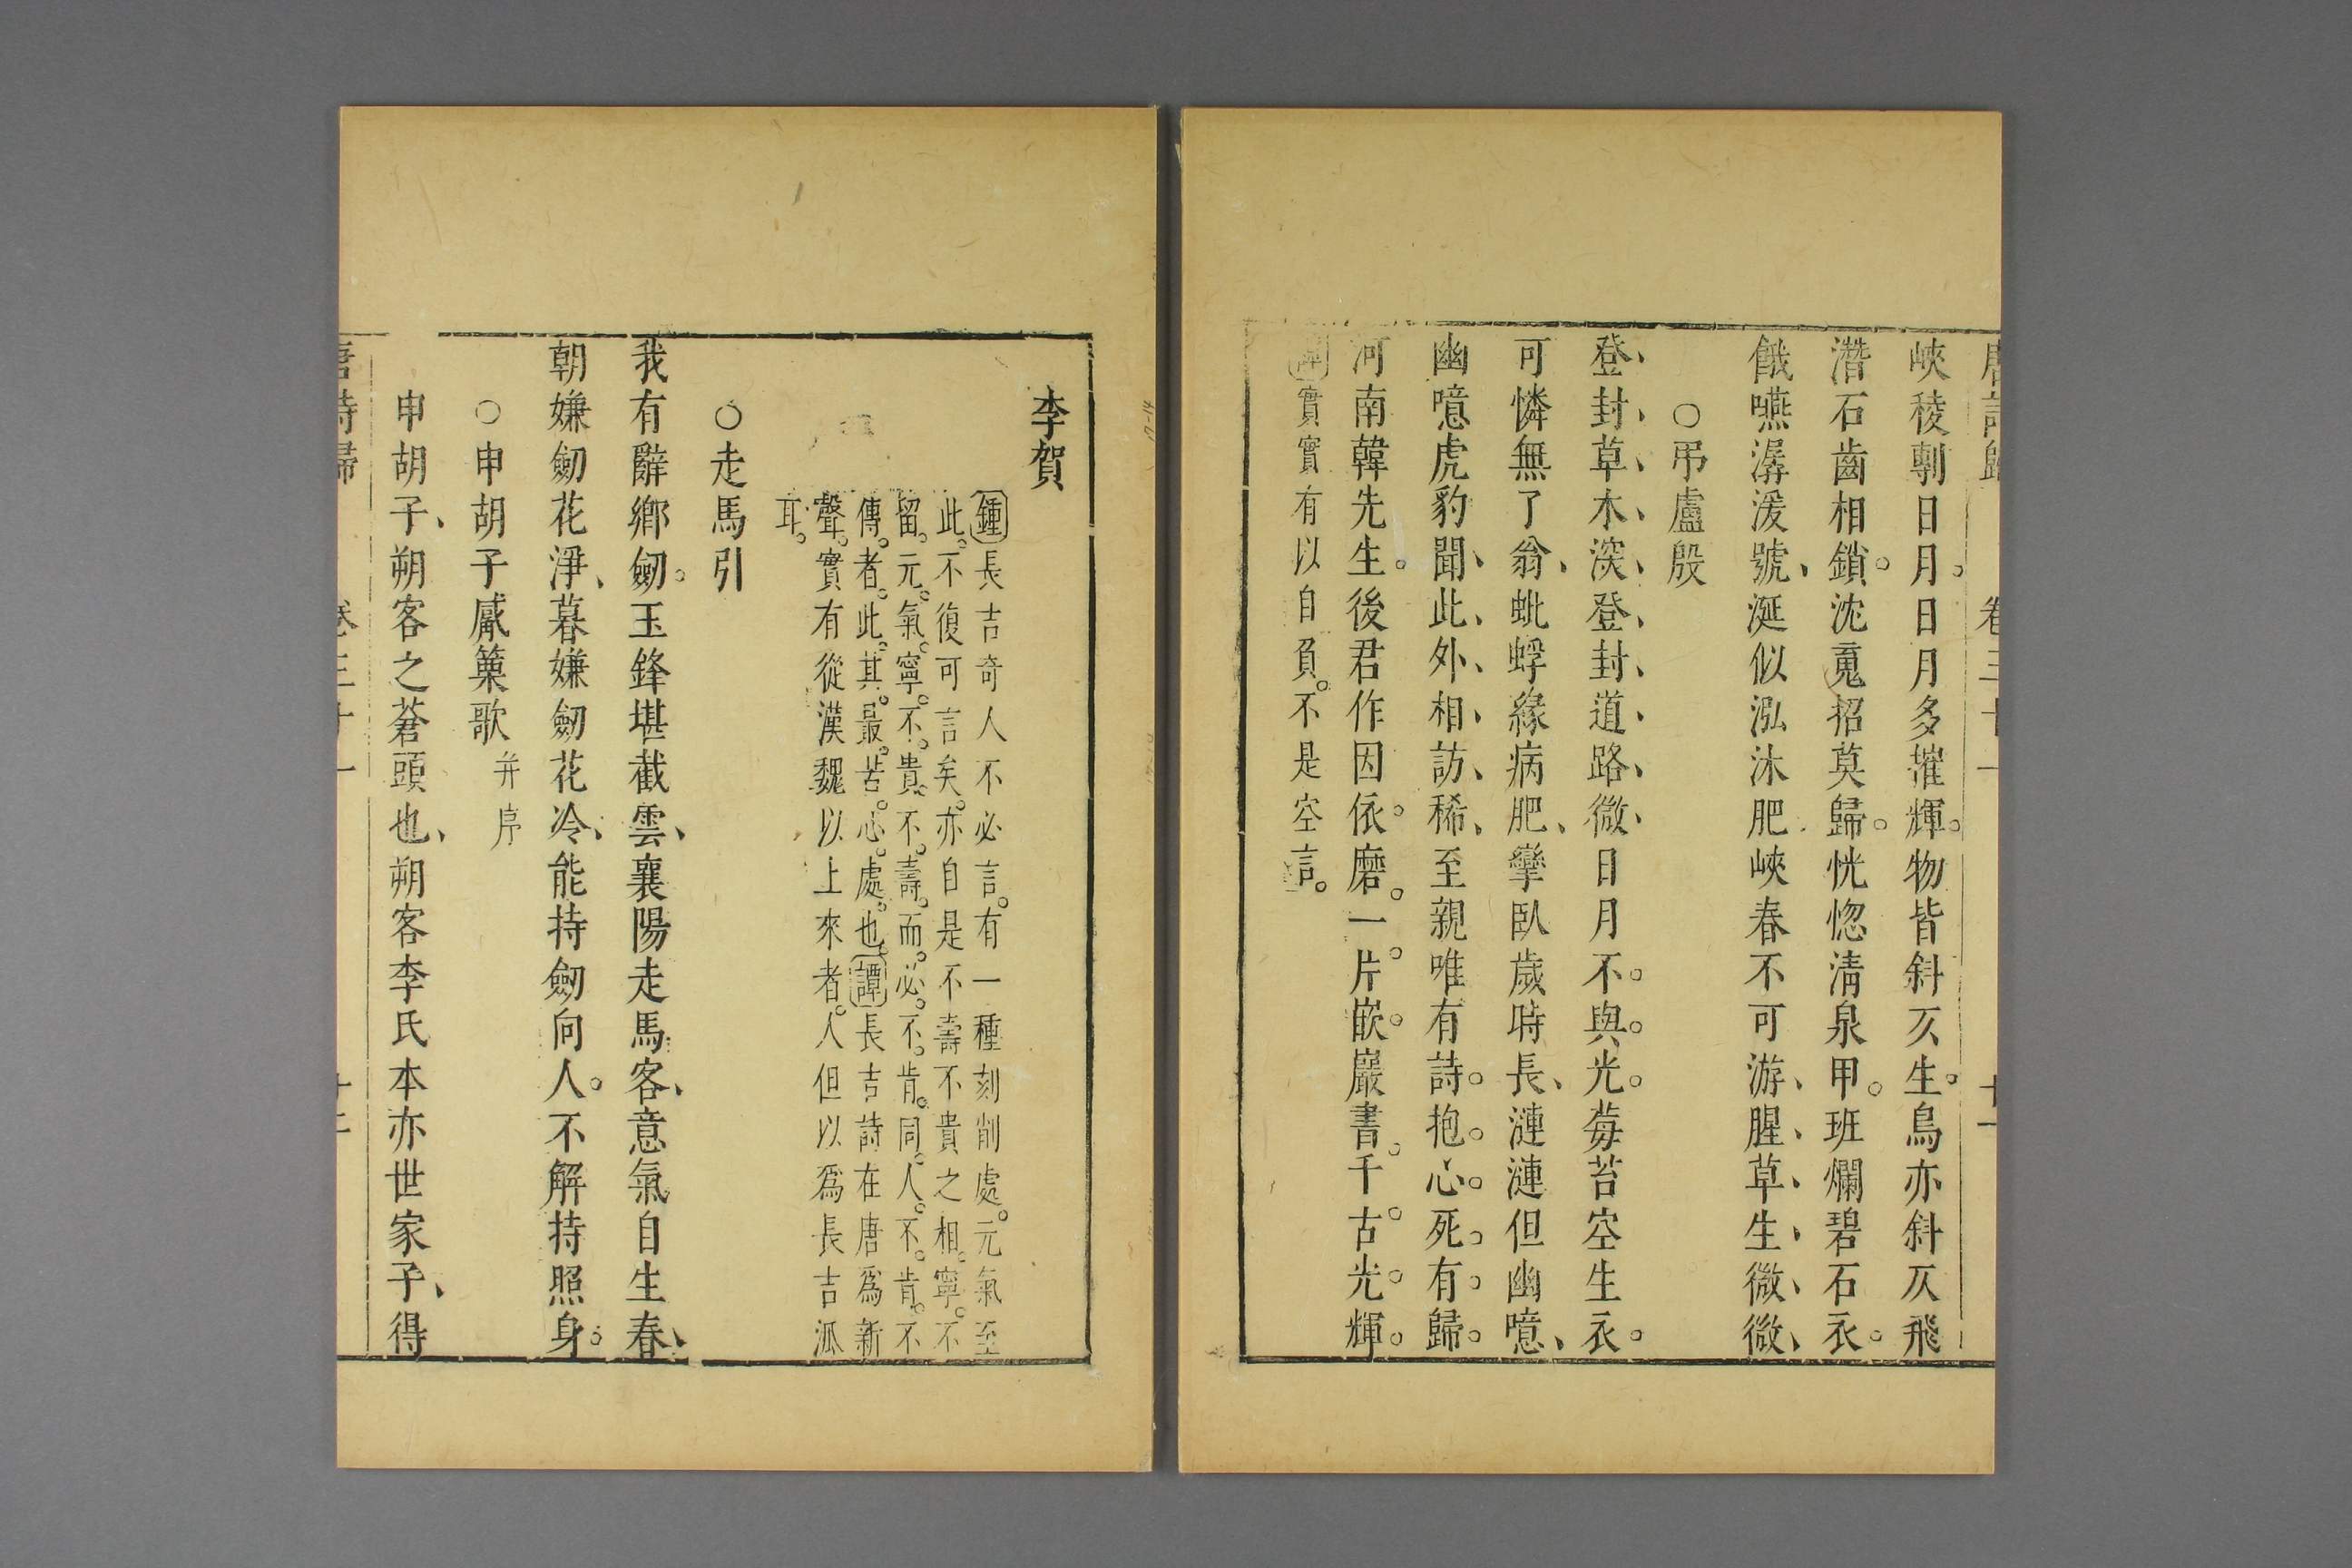 唐詩歸 卷三十一 十一
峽稜剸日月日月多摧輝物皆斜仄生鳥亦斜仄飛
潛石齒相鎖沈䰟招莫歸恍惚清泉甲班斕碧石衣
餓嚥潺湲號涎似泓沐肥峽春不可游腥草生微微
○弔盧殷
登封草木深登封道路微日月不與光莓苔空生衣
可憐無了翁蚍蜉緣病肥孿臥歲時長漣漣但幽噫
幽噫虎豹聞此外相訪稀至親唯有詩抱心死有歸
河南韓先生後君作因依磨一片嵌巖書千古光輝
實實有以自負不是空言
李賀
鍾長吉奇人不必言有一種刻削處元氣至
此不復可言矣亦自是不壽不貴之相寧不
留元氣寧不貴不壽而必不肯同人不肯不
傳者此其最苦心處也譚長吉詩在唐爲新
聲實有從漢魏以上來者人但以爲長吉派
耳
○走馬引
我有辭鄉劒玉鋒堪截雲襄陽走馬客意氣自生春
朝嫌劒花淨暮嫌劒花冷能持劒向人不解持照身
○申胡子觱篥歌并序
申胡子朔客之蒼頭也朔客李氏本亦世家子得
唐詩歸 卷三十一 十二